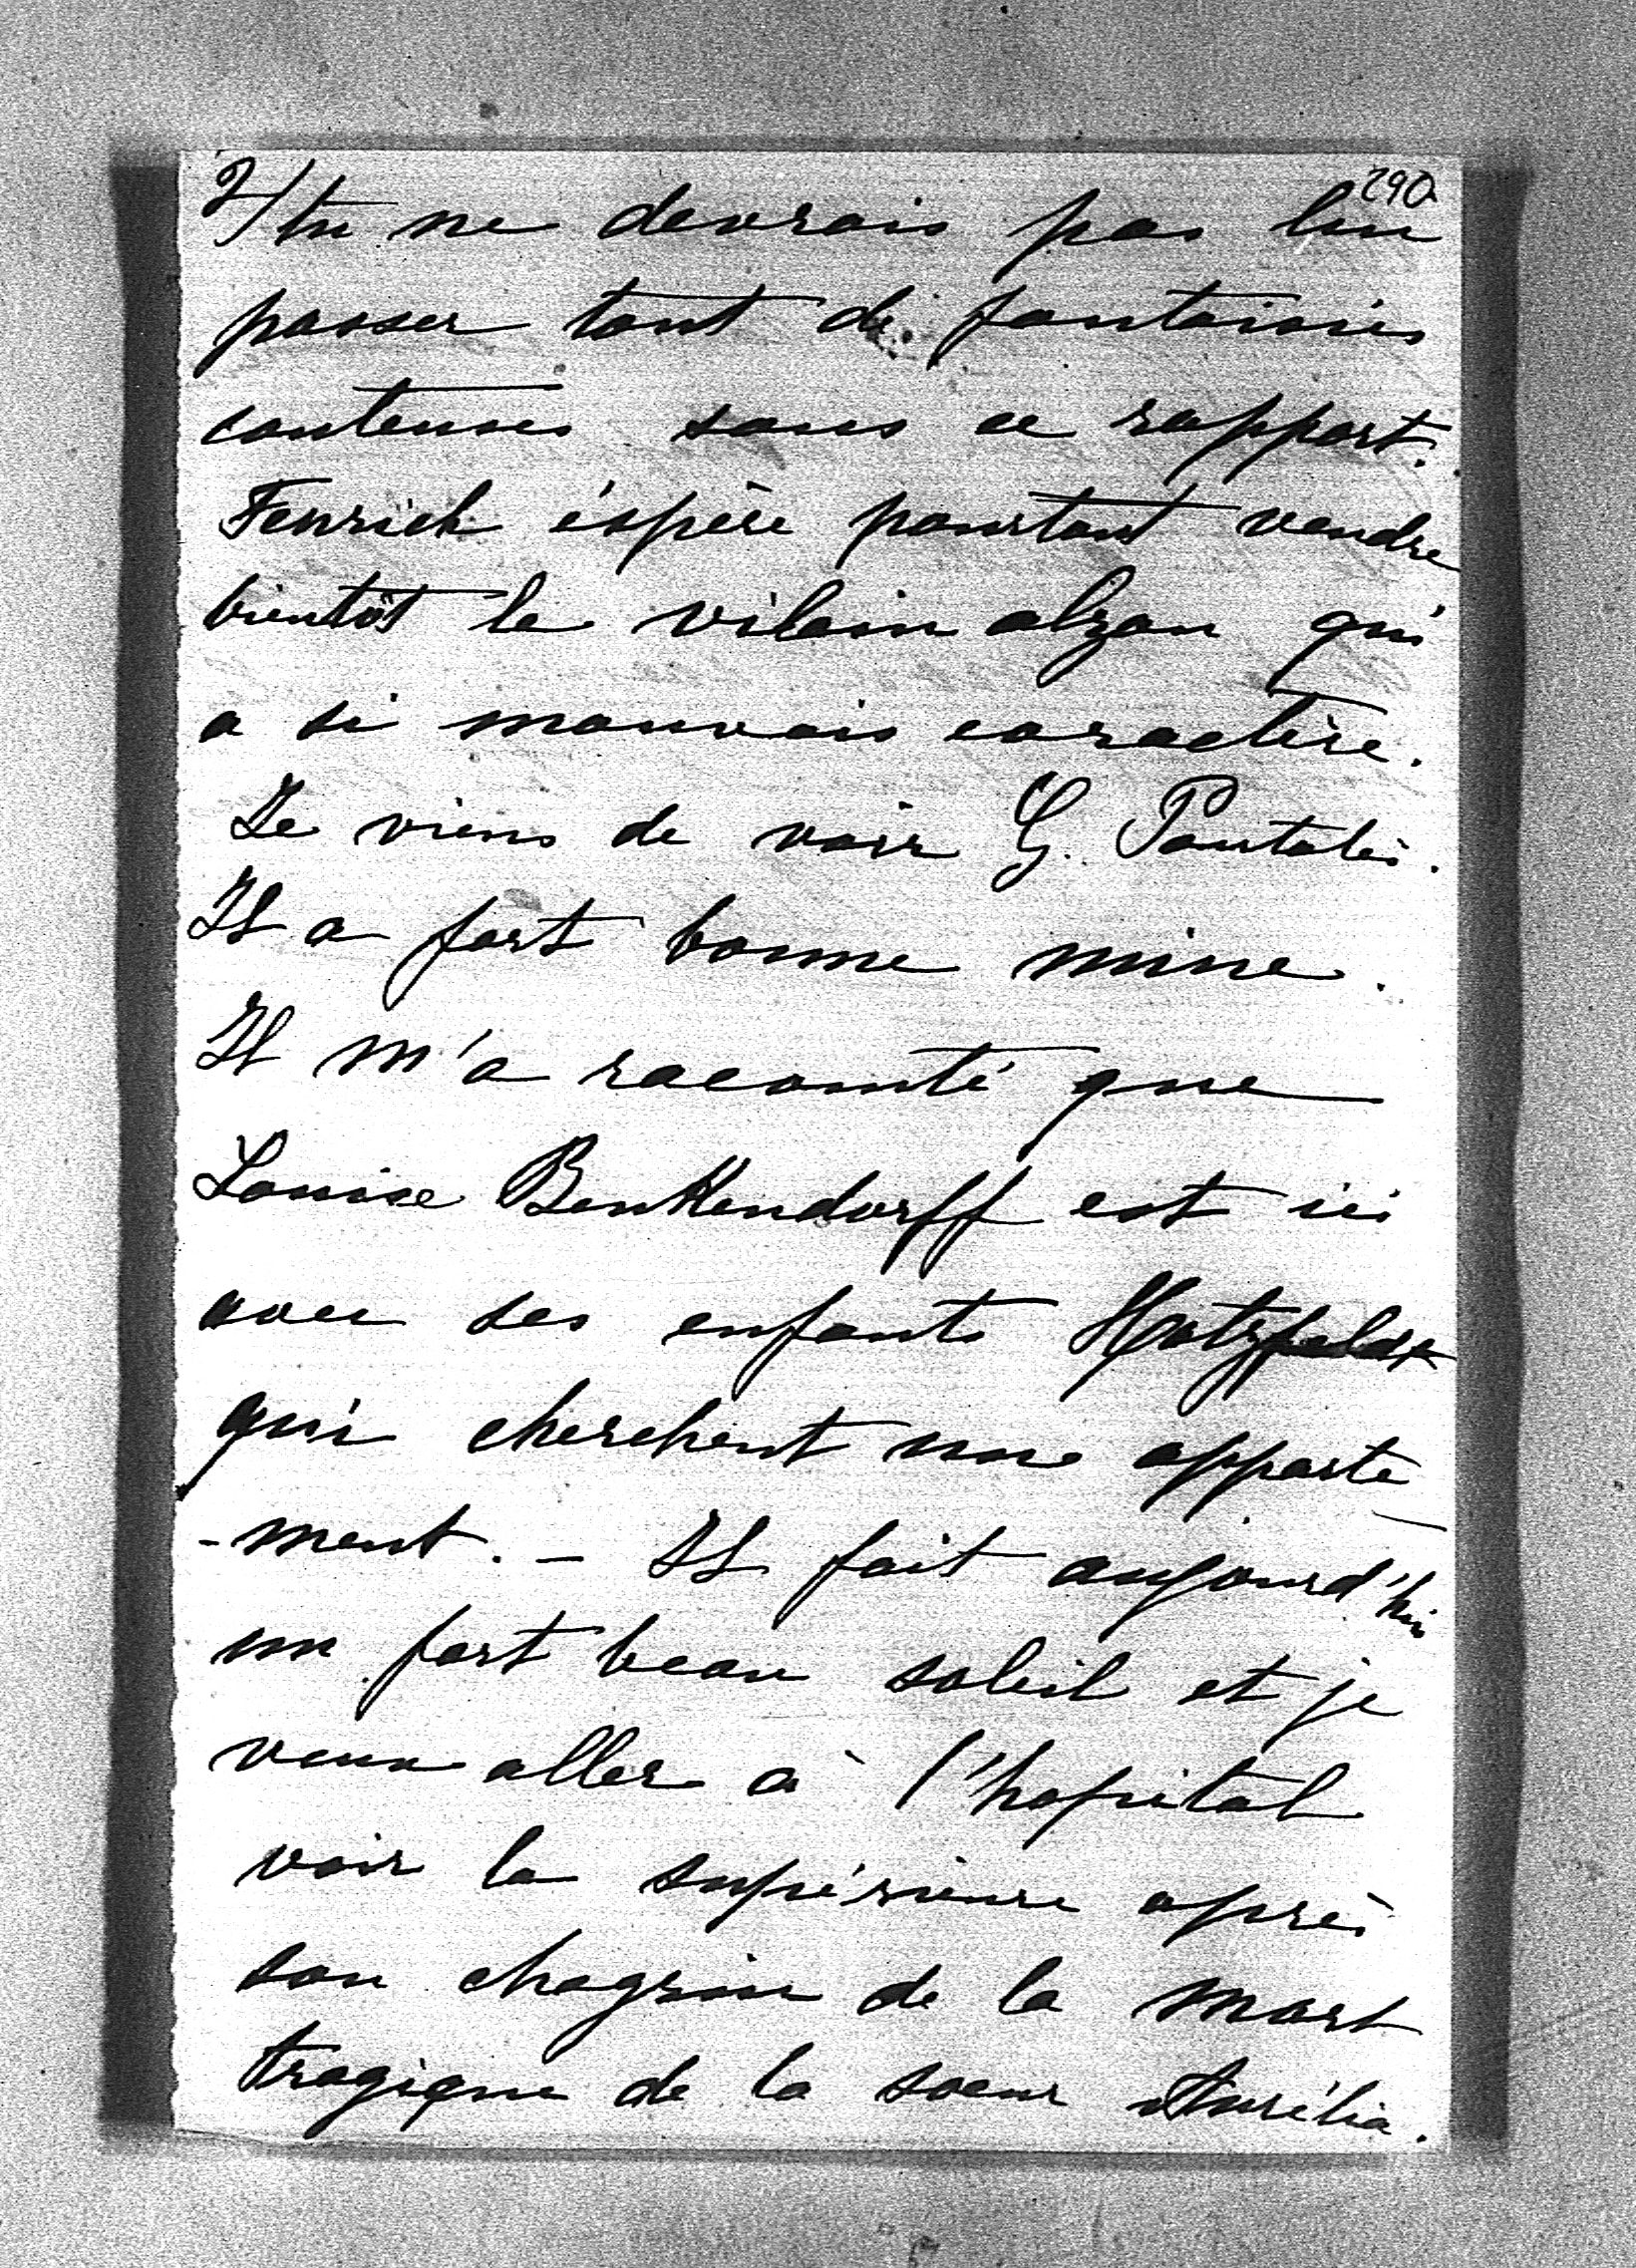 290
2/ tu ne devrais pas lui
passer tant de fantaisies
couteuses sous ce rapport.
Fenrich éspère pourtant vendre
bientôt le vilain alzan qui
a si mauvais caractère.
Je viens de voir G. Pourtalès.
Il a fort bonne mine.
Il m'a raconté que
Louise Benkendorff est ici
avec ses enfants Hatzfeldt
qui cherchent une apparte
-ment. – Il fait aujourd'hui
un fort beau soleil et je
veux aller à l'hopital
voir la supérieure après
son chagrin de la mort
tragique de la soeur Aurélia.